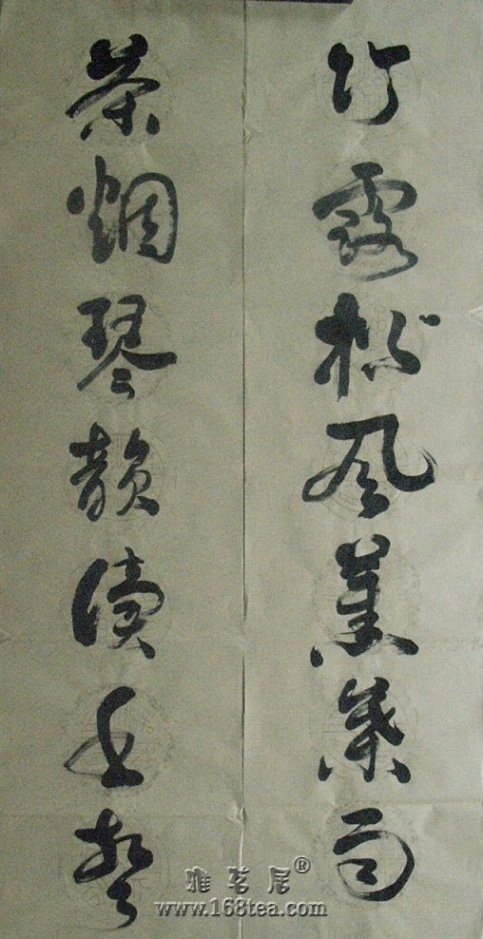 竹露松风蕉葉雨
茶烟琴韻读书声
雅茗居®
www.168tea.com